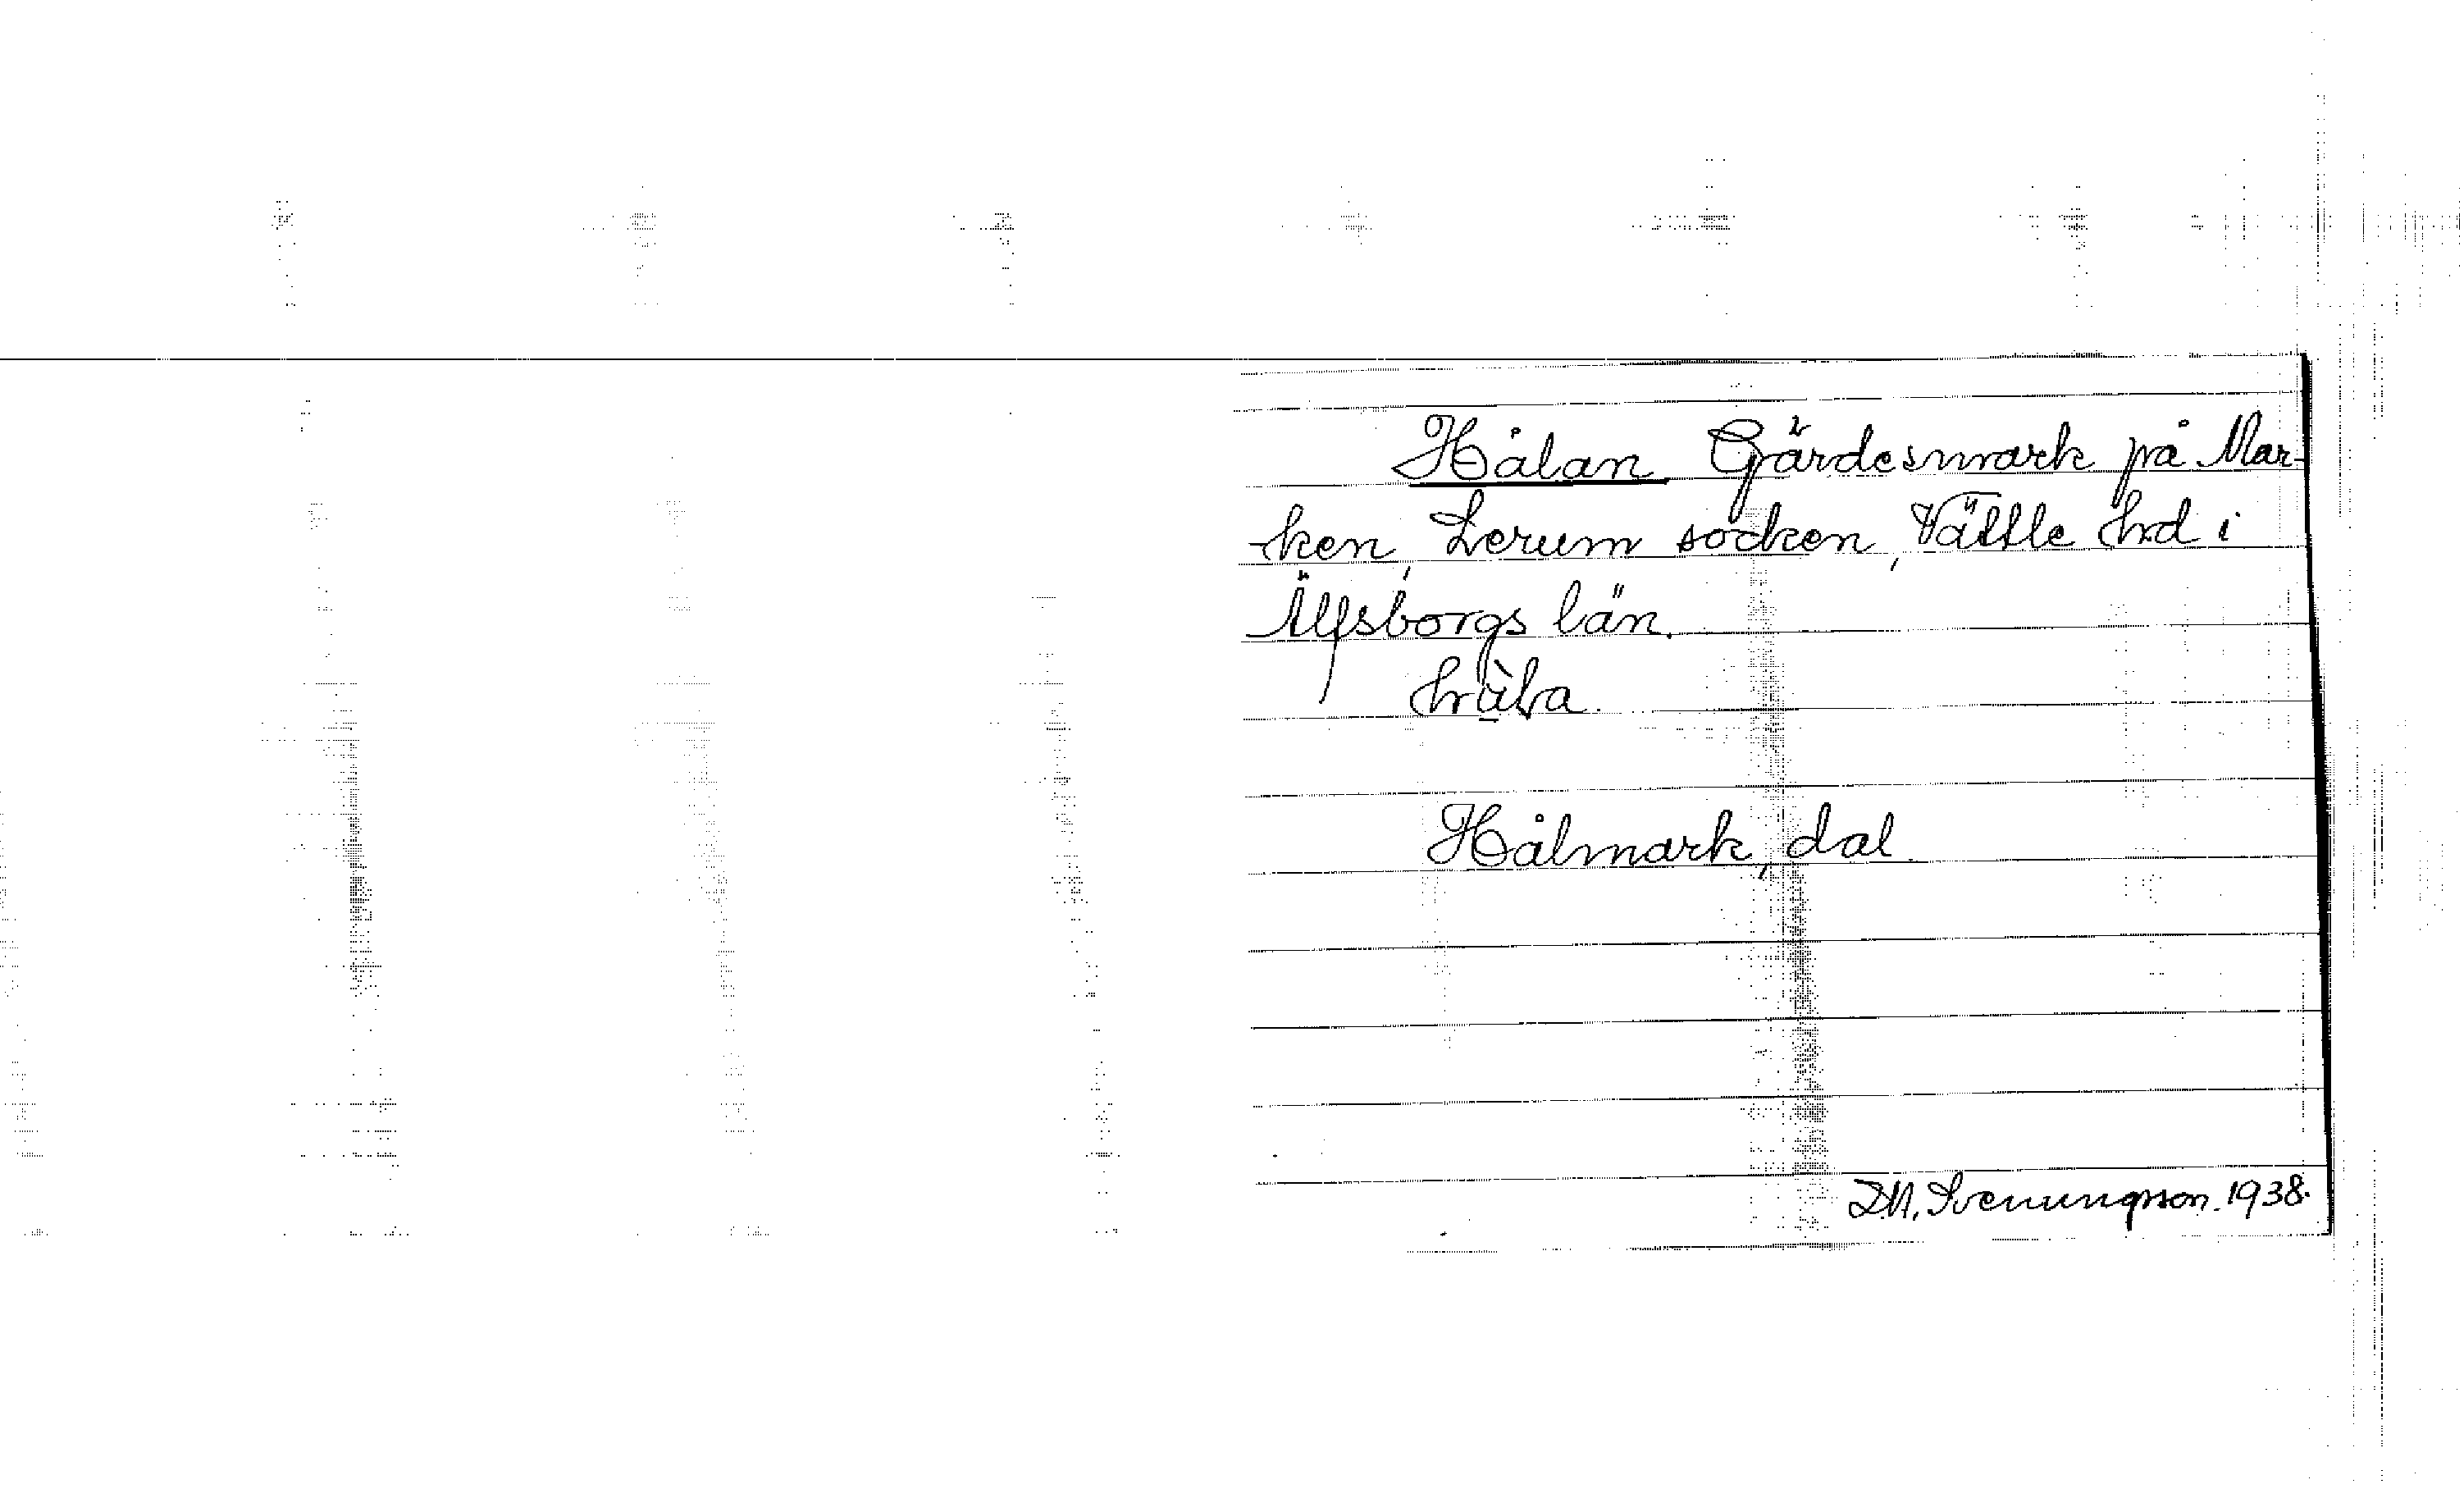 Hålan Gärdesmark på Mar-
ken, Lerum socken, Vättle hrd i
Älfsborgs län.
Hålmark, dal.
D.N. Svenungsson. 1938.